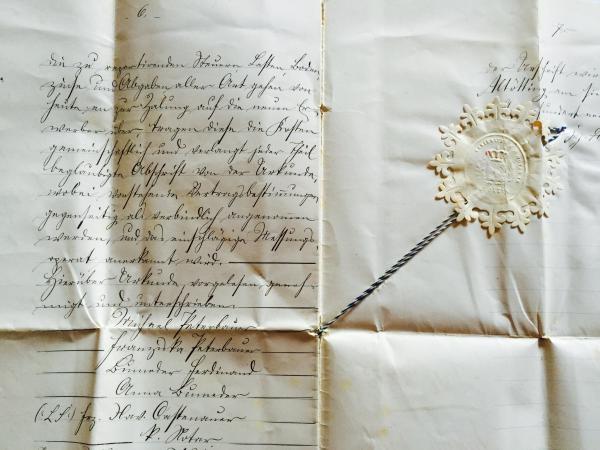 6.
die zu repartirenden Steuern Lasten, Boden-
zinse und Abgaben aller Art gehen von
heute an zur Zalung auf die neuen Er-
werber über, tragen diese die Kosten
gemeinschaftlich und verlangt jeder Theil
beglaubigte Abschrift von der Urkunde,
wobei vorstehende Vertragsbestimmungen
gegenseitig als verbindlich angenommen
werden, und das einschlägige Messungs-
operat anerkannt wird.
Hierüber Urkunde, vorgelesen, geneh-
migt und unterschrieben.
Michael Peterbauer
Franziska Peterbauer
Ferdinand
Anna
(L.S.) gez. Xav. Castenauer
k. Notar
7.
der Urschrift
Altötting am